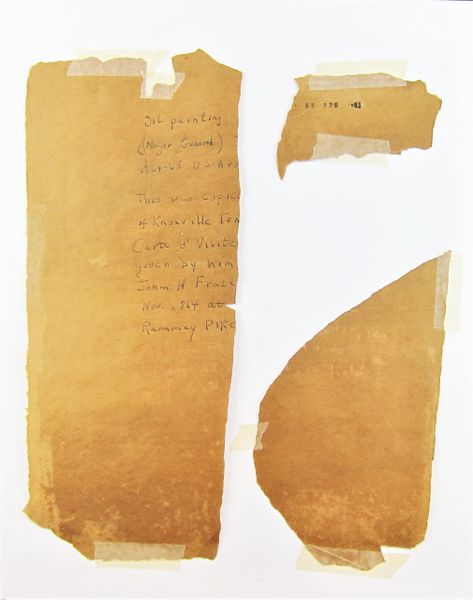 Oil painting
(Major General)
1864-65 U S Ar
This was Copie
of Knoxville Ten
Carte d' Visite
given by him
John H Fraz
Nov. 1864 at
Rammey Pike
05 320